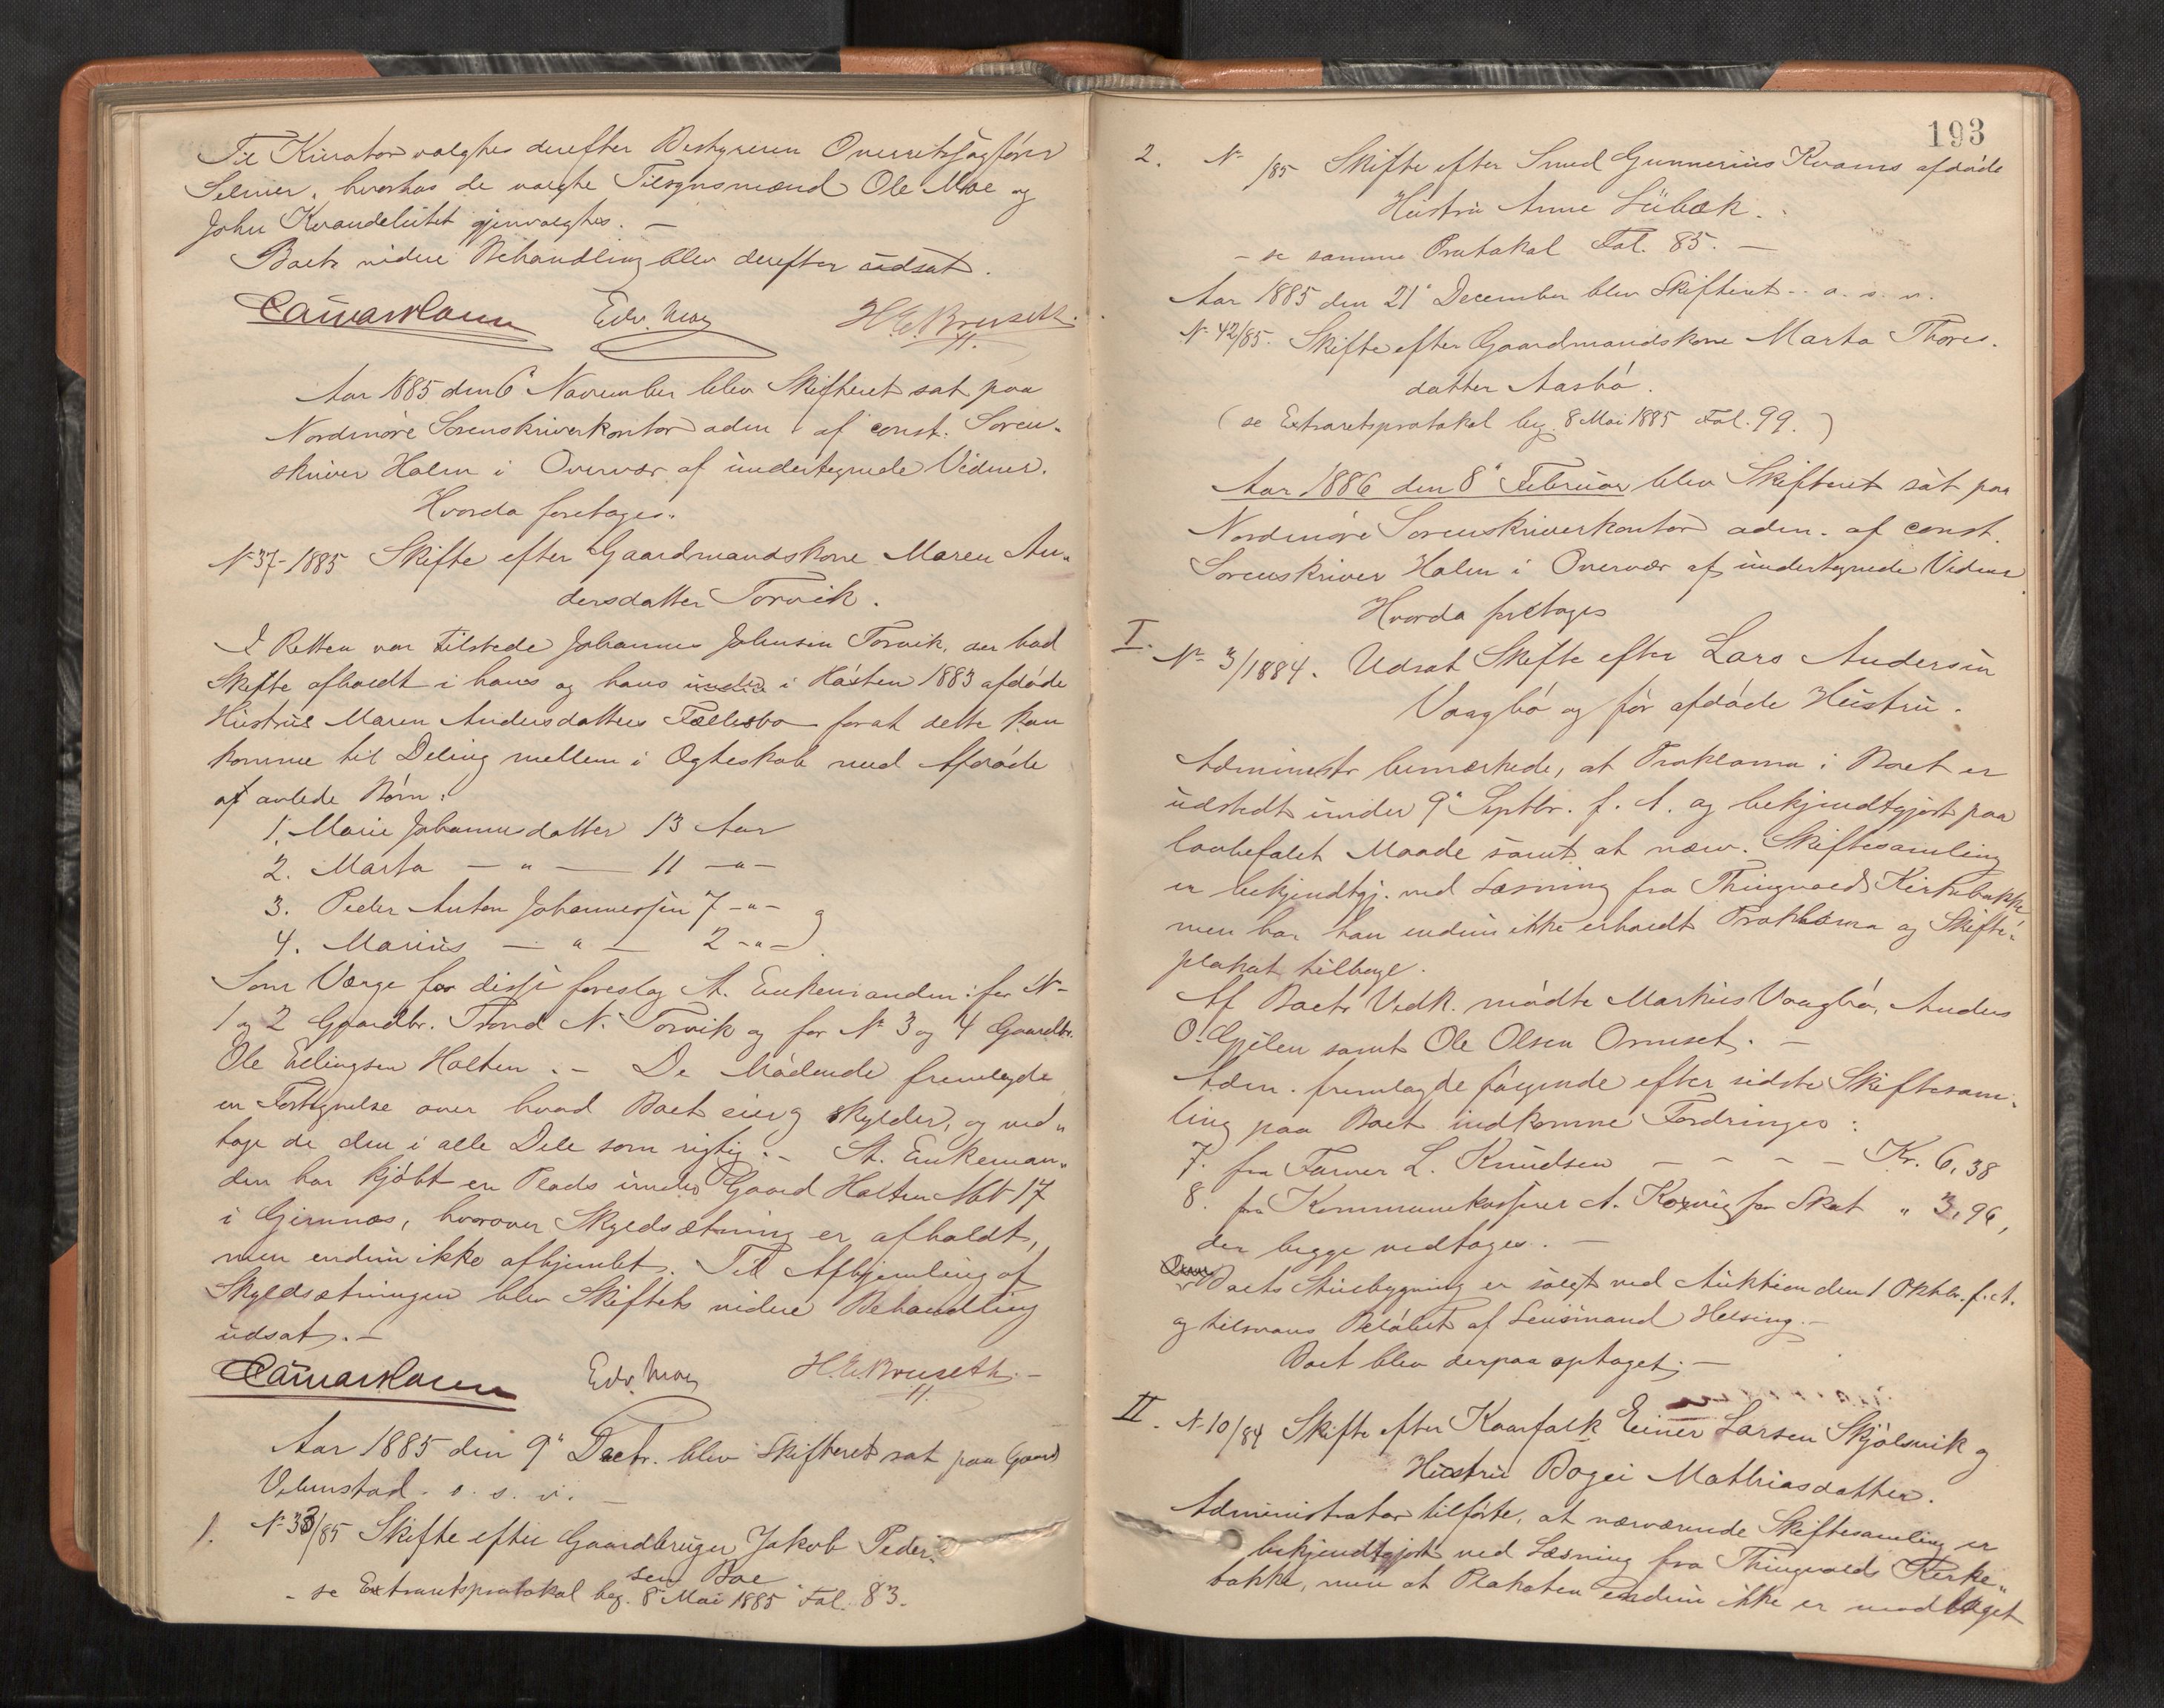 Til Kurator valgtes derefter Bestyreren Overretssagfører
Selmer, hvorhos de valgte Tilsynsmænd Ole Moe og
John Kvandeluitet gjenvalgtes. —
Boets videre Behandling blev derefter udsat.
Edv. Moe H. E. Bruseth.
Aar 1885 den 6' November blev Skifteret sat paa
Nordmøre Sorenskriverkontor adm. af const. Soren-
skriver Holm i Overvær af undertegnede Vidner.
Hvorda foretoges:
No 37-1885 Skifte efter Gaardmandskone Maren An-
dersdatter Torvik.
I Retten var tilstede Johannes Johnsen Torvik, der bad
Skifte afholdt i hans og hans i Høsten 1883 afdøde
Hustrues Maren Andersdatters Fællesbo forat dette kan
komme til Deling mellem i Ægteskab med Afdøde
af avlede Børn:
1. Marie Johannesdatter 13 Aar
2. Marta — " — 11 — " —
3. Peder Anton Johannessen 7 — " — og
4. Marius — " — 2 — " —
Som Værge for disse foreslog A. Enkemanden: for No
1 og 2 Gaardbr. Trond N. Torvik og for No 3 og 4 Gaardbr.
Ole Ellingsen Holten. — De Mødende fremlagde
en Fortegnelse over hvad Boet eier og skylder, og ved-
toge de den i alle Dele som rigtig. — St. Enkeman-
den har kjøbt en Plads under Gaard Holten Mt 17
i Gimnæs, hvorover Skyldsætning er afholdt,
men endnu ikke afhjemlet. Til Afhjemling af
Skyldsætningen blev Skiftets videre Behandling
udsat. —
Edv. Moe H. E. Bruseth. —
Aar 1885 den 9" Decbr. blev Skifteret sat paa Gaard
Velmstad o. s. v. —
1. No 33/85 Skifte efter Gaardbruger Jakob Peder-
sen Boe
- se Extraretsprotokol beg. 8' Mai 1885 Fol. 83.
193
2. No /85 Skifte efter Smed Gunnerius Kvams afdøde
Hustru Anne Lübæk.
- se samme Protokol Fol. 85. —
Aar 1885 den 21' December blev Skifteret - o. s. v.
No 42/85. Skifte efter Gaardmandskone Marta Thores-
datter Aasbø.
(se Extraretsprotokol beg. 8 Mai 1885 Fol. 99.)
Aar 1886 den 8' Februar blev Skifteret sat paa
Nordmøre Sorenskriverkontor adm. af const.
Sorenskriver Holm i Overvær af undertegnede Vidner
Hvorda foretoges
I. No 3/1884. Udsat Skifte efter Lars Andersen
Vaagbø og før afdøde Hustru.
Administr bemærkede, at Proklama i Boet er
udstedt under 9' Septbr. f. A. og bekjendtgjort paa
lovbefalet Maade samt at nærv. Skiftesamling
er bekjendtgj. ved Læsning fra Thingvolds Kirkebakke,
men har han endnu ikke erholdt Proklama og Skifte-
plakat tilbage.
Af Boets Vedk. mødte Markus Vaagbø, Anders
O. Gjølen samt Ole Olsen Ormset. —
Adm. fremlagde følgende efter sidste Skiftesam-
ling paa Boet indkomne Fordringer:
7. fra Farver L. Knudsen — — — — Kr. 6,38
8. fra Kommunekasserer A. Koxvig for Skat " 3,96,
der begge vedtages. —
Boets Stuebygning er solgt ved Auktion den 1 Oktbr. f. A.
og tilsvares Beløbet af Lensmand Helsing. —
Boet blev derpaa optaget. —
II. No 10/84 Skifte efter Kaarfolk Einer Larsen Skjølsvik og
Hustru Dogei Mathiasdatter.
Administrator tilførte, at nærværende Skiftesamling er
bekjendtgjort ved Læsning fra Thingvolds Kirke-
bakke, men at Plakaten endnu ikke er modtaget